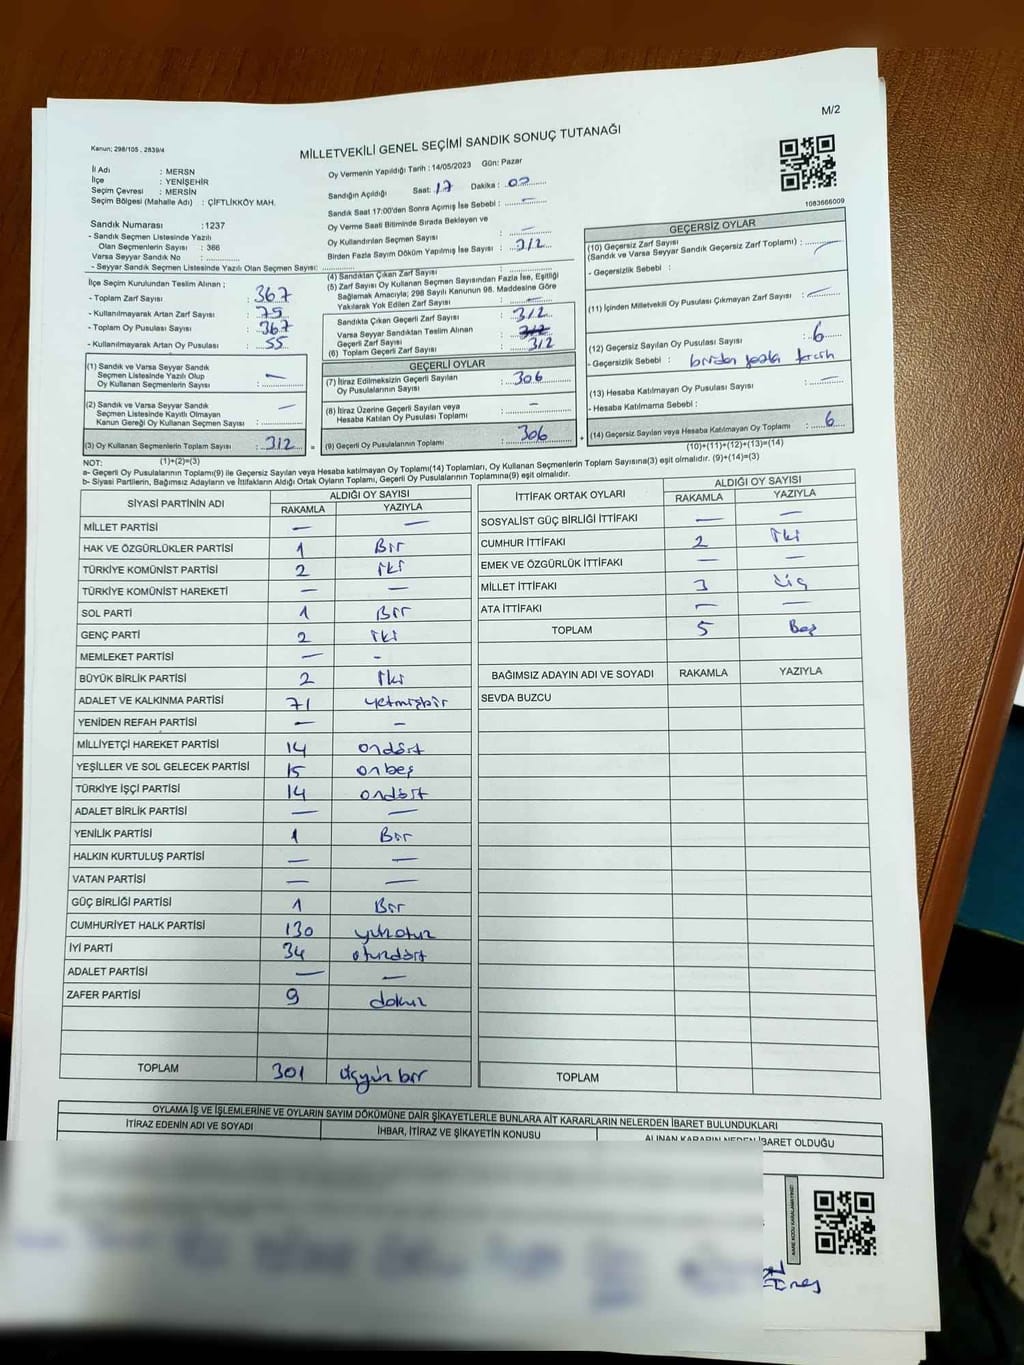 M/2
Kanun; 298/105 , 2839/4
MİLLETVEKİLİ GENEL SEÇİMİ SANDIK SONUÇ TUTANAĞI
İl Adı : MERSN
İlçe : YENİŞEHİR
Seçim Çevresi : MERSİN
Seçim Bölgesi (Mahalle Adı) : ÇİFTLİKKÖY MAH.
Sandık Numarası : 1237
- Sandık Seçmen Listesinde Yazılı
Olan Seçmenlerin Sayısı : 366
Varsa Seyyar Sandık No : ..............
- Seyyar Sandık Seçmen Listesinde Yazılı Olan Seçmen Sayısı: ..............
Oy Vermenin Yapıldığı Tarih : 14/05/2023 Gün: Pazar
Sandığın Açıldığı Saat: 17 Dakika : 02
Sandık Saat 17:00'den Sonra Açımış İse Sebebi : —
Oy Verme Saati Bitiminde Sırada Bekleyen ve
Oy Kullandırılan Seçmen Sayısı : —
Birden Fazla Sayım Döküm Yapılmış İse Sayısı : 312
1083666009
İlçe Seçim Kurulundan Teslim Alınan ;
- Toplam Zarf Sayısı : 367
- Kullanılmayarak Artan Zarf Sayısı : 75
- Toplam Oy Pusulası Sayısı : 367
- Kullanılmayarak Artan Oy Pusulası : 55
(1) Sandık ve Varsa Seyyar Sandık
Seçmen Listesinde Yazılı Olup
Oy Kullanan Seçmenlerin Sayısı : —
(2) Sandık ve Varsa Seyyar Sandık
Seçmen Listesinde Kayıtlı Olmayan
Kanun Gereği Oy Kullanan Seçmen Sayısı : —
(3) Oy Kullanan Seçmenlerin Toplam Sayısı : 312 =
(1)+(2)=(3)
(4) Sandıktan Çıkan Zarf Sayısı :
(5) Zarf Sayısı Oy Kullanan Seçmen Sayısından Fazla İse, Eşitliği
Sağlamak Amacıyla; 298 Sayılı Kanunun 98. Maddesine Göre
Yakılarak Yok Edilen Zarf Sayısı : —
Sandıkta Çıkan Geçerli Zarf Sayısı : 312
Varsa Seyyar Sandıktan Teslim Alınan
Geçerli Zarf Sayısı : 312
(6) Toplam Geçerli Zarf Sayısı : 312
GEÇERLİ OYLAR
(7) İtiraz Edilmeksizin Geçerli Sayılan
Oy Pusulalarının Sayısı : 306
(8) İtiraz Üzerine Geçerli Sayılan veya
Hesaba Katılan Oy Pusulası Toplamı : —
(9) Geçerli Oy Pusulalarının Toplamı : 306 +
GEÇERSİZ OYLAR
(10) Geçersiz Zarf Sayısı
(Sandık ve Varsa Seyyar Sandık Geçersiz Zarf Toplamı) : —
- Geçersizlik Sebebi :
(11) İçinden Milletvekili Oy Pusulası Çıkmayan Zarf Sayısı : —
(12) Geçersiz Sayılan Oy Pusulası Sayısı : 6
- Geçersizlik Sebebi : birden fazla tercih
(13) Hesaba Katılmayan Oy Pusulası Sayısı : —
- Hesaba Katılmama Sebebi :
(14) Geçersiz Sayılan veya Hesaba Katılmayan Oy Toplamı : 6
(10)+(11)+(12)+(13)=(14)
NOT:
a- Geçerli Oy Pusulalarının Toplamı(9) ile Geçersiz Sayılan veya Hesaba katılmayan Oy Toplamı(14) Toplamları, Oy Kullanan Seçmenlerin Toplam Sayısına(3) eşit olmalıdır. (9)+(14)=(3)
b- Siyasi Partilerin, Bağımsız Adayların ve İttifakların Aldığı Ortak Oyların Toplamı, Geçerli Oy Pusulalarının Toplamına(9) eşit olmalıdır.
SİYASİ PARTİNİN ADI ALDIĞI OY SAYISI
RAKAMLA YAZIYLA
MİLLET PARTİSİ — —
HAK VE ÖZGÜRLÜKLER PARTİSİ 1 Bir
TÜRKİYE KOMÜNİST PARTİSİ 2 iki
TÜRKİYE KOMÜNİST HAREKETİ — —
SOL PARTİ 1 Bir
GENÇ PARTİ 2 iki
MEMLEKET PARTİSİ — -
BÜYÜK BİRLİK PARTİSİ 2 İki
ADALET VE KALKINMA PARTİSİ 71 yetmişbir
YENİDEN REFAH PARTİSİ — —
MİLLİYETÇİ HAREKET PARTİSİ 14 ondört
YEŞİLLER VE SOL GELECEK PARTİSİ 15 onbeş
TÜRKİYE İŞÇİ PARTİSİ 14 ondört
ADALET BİRLİK PARTİSİ — —
YENİLİK PARTİSİ 1 Bir
HALKIN KURTULUŞ PARTİSİ — —
VATAN PARTİSİ — —
GÜÇ BİRLİĞİ PARTİSİ 1 Bir
CUMHURİYET HALK PARTİSİ 130 yüzotuz
İYİ PARTİ 34 otuzdört
ADALET PARTİSİ — —
ZAFER PARTİSİ 9 dokuz
TOPLAM 301 üçyüz bir
İTTİFAK ORTAK OYLARI ALDIĞI OY SAYISI
RAKAMLA YAZIYLA
SOSYALİST GÜÇ BİRLİĞİ İTTİFAKI — —
CUMHUR İTTİFAKI 2 İki
EMEK VE ÖZGÜRLÜK İTTİFAKI — —
MİLLET İTTİFAKI 3 üç
ATA İTTİFAKI — —
TOPLAM 5 Beş
BAĞIMSIZ ADAYIN ADI VE SOYADI RAKAMLA YAZIYLA
SEVDA BUZCU
TOPLAM
OYLAMA İŞ VE İŞLEMLERİNE VE OYLARIN SAYIM DÖKÜMÜNE DAİR ŞİKAYETLERLE BUNLARA AİT KARARLARIN NELERDEN İBARET BULUNDUKLARI
İTİRAZ EDENİN ADI VE SOYADI İHBAR, İTİRAZ VE ŞİKAYETİN KONUSU ALINAN KARARIN NEDEN İBARET OLDUĞU